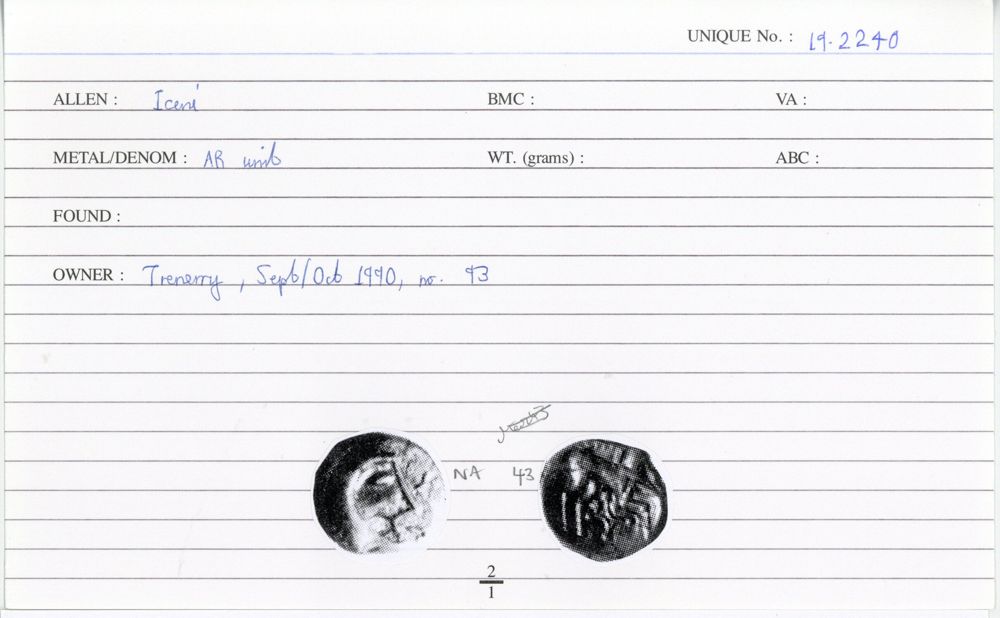 UNIQUE No. : 19.2240
ALLEN : Iceni BMC : VA :
METAL/DENOM : AR unit WT. (grams) : ABC :
FOUND :
OWNER : Trenerry, Sept/Oct 1990, no. 43
NA 43
2
1